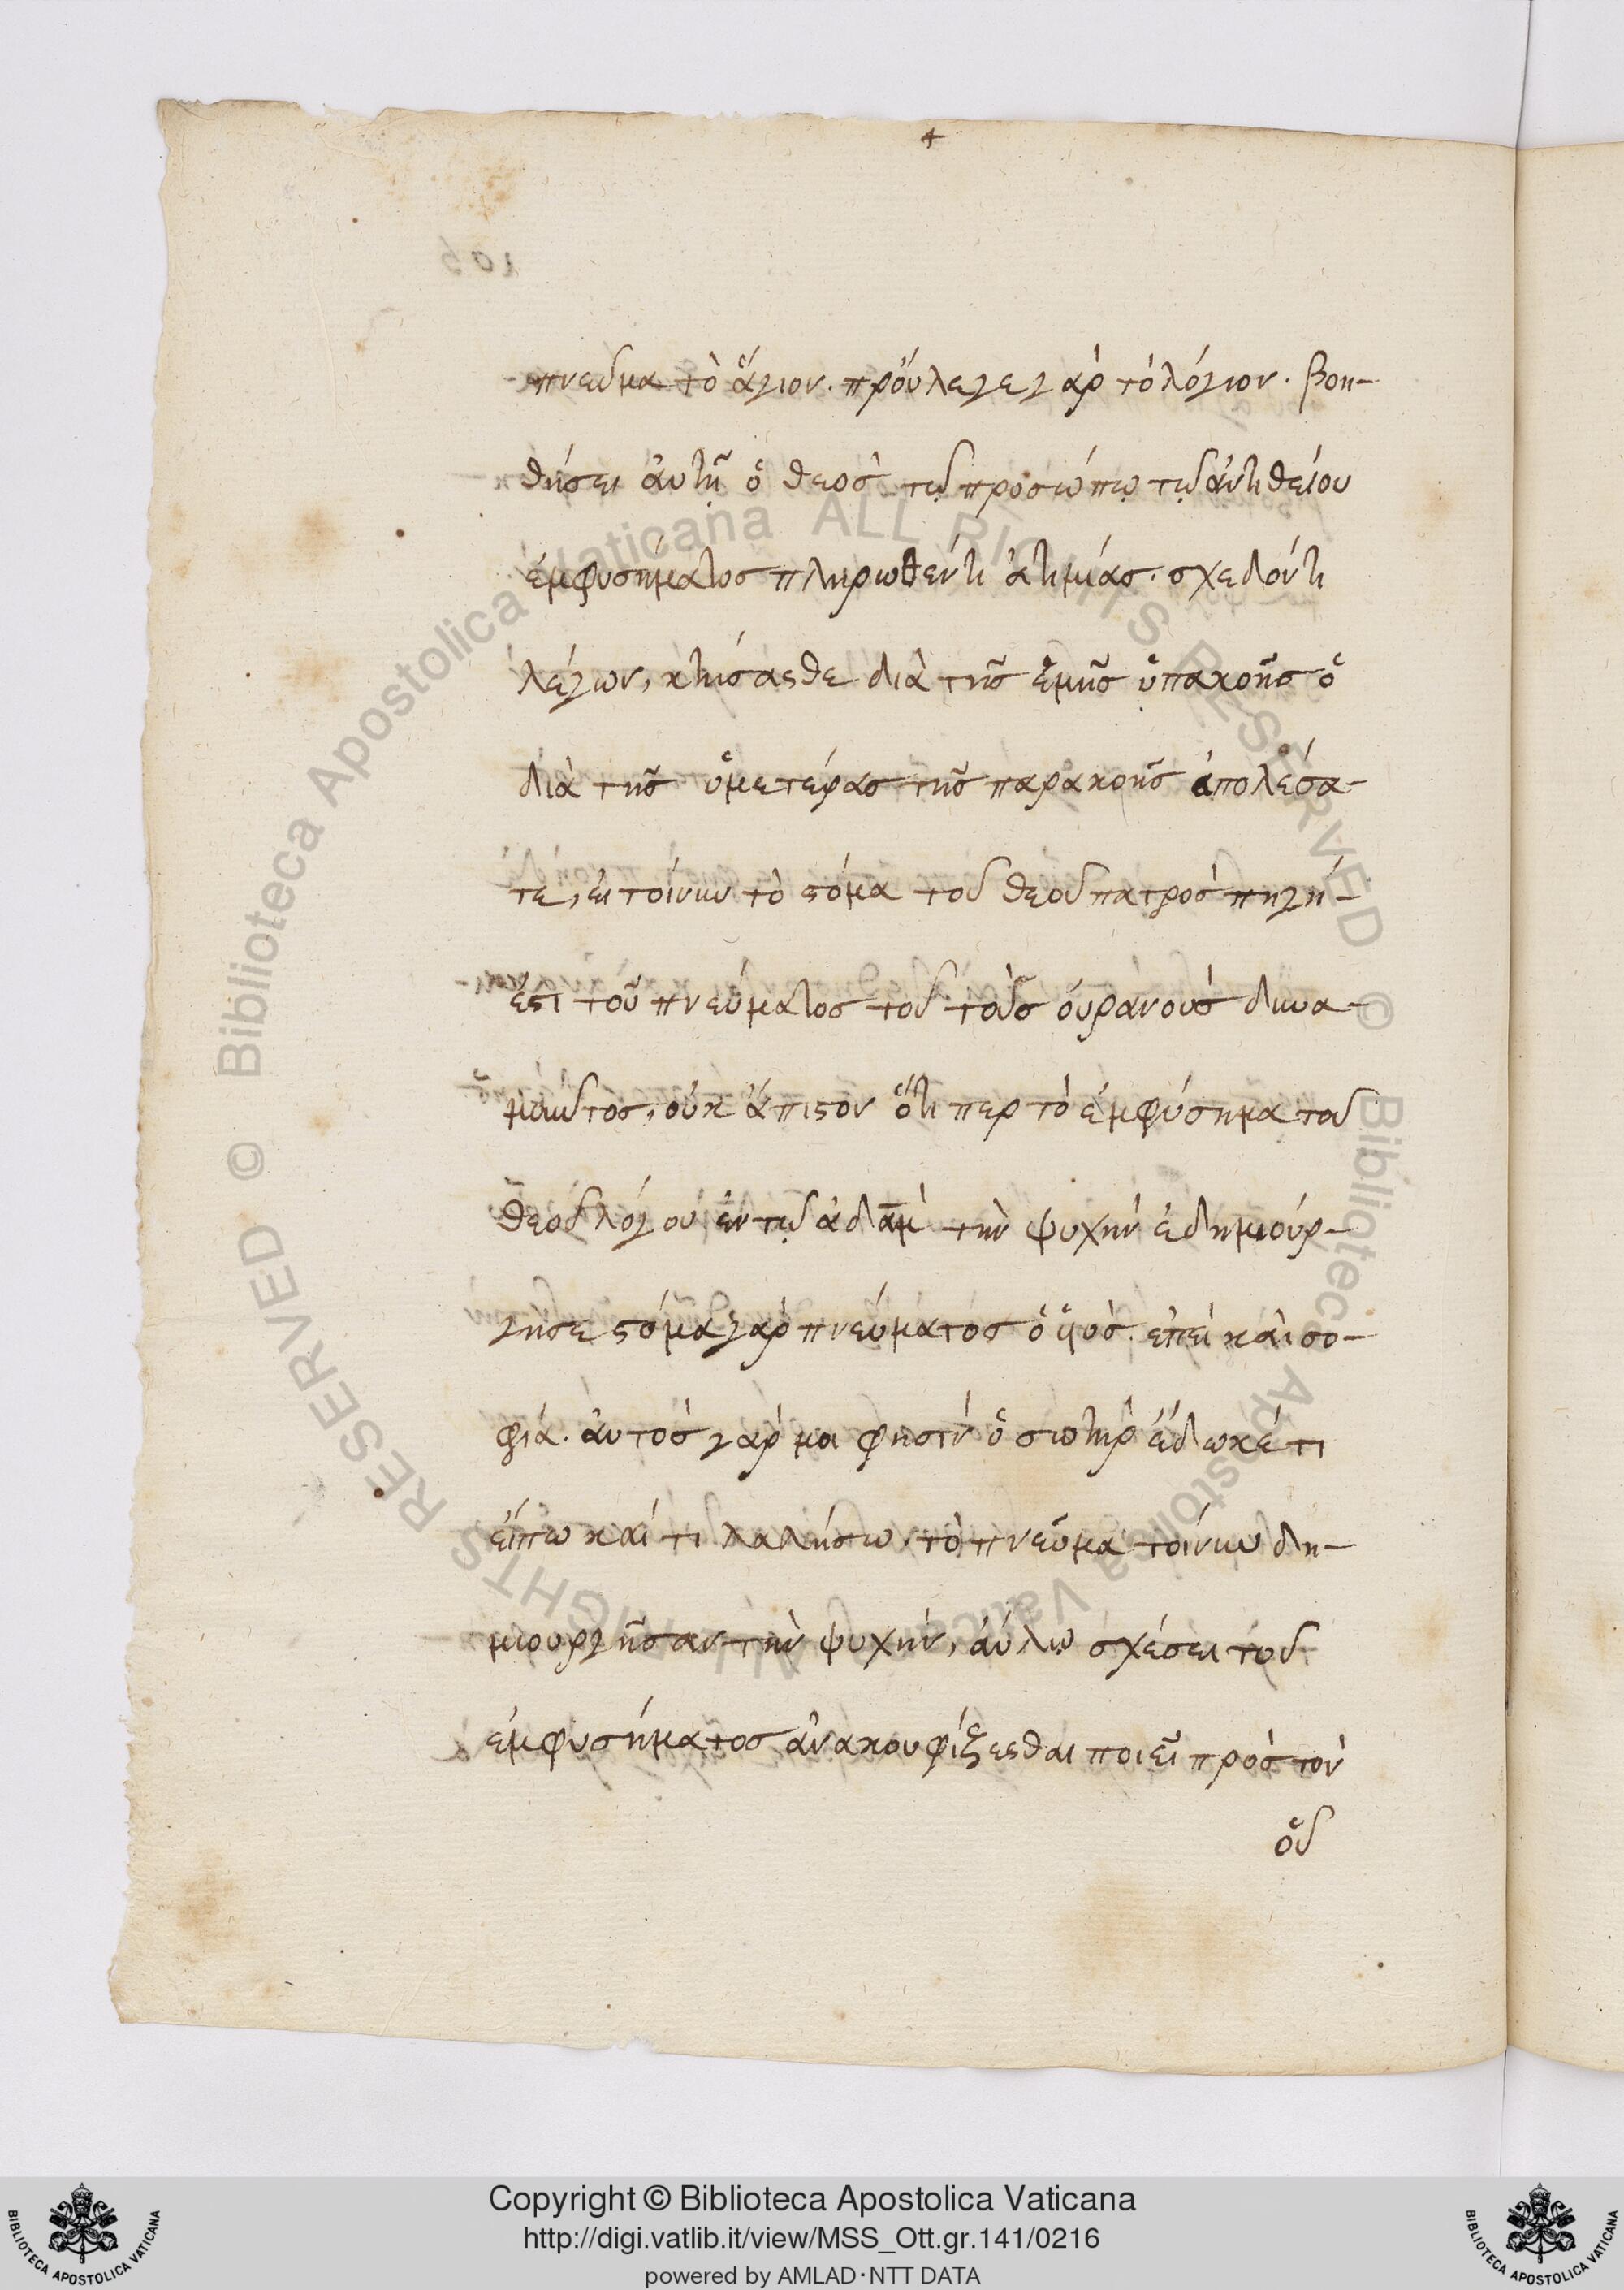 πνεῦμα τὸ ἅγιον. πρόυλεγε γὰρ τὸ λόγιον. βοη-
θήσει ἀυτῇ ὁ θεοσ τῷ προσώπῳ τῷ ἀντὶ θείου
ἐμφυσήματος πληρωθέντι ἀτιμίας. σχεδόντι
λέγων, κτήσασθε διὰ τῆς ἐμῆς ὑπακοῆς ὃ
διὰ τῆς ὑμετέρας τῆς παρακοῆς ἀπολέσα-
τε, ει τοίνυν τὸ στόμα τοῦ θεοῦ πατρὸς πηγή
ἐστι τοῦ πνεύματος τοῦ τοὺς ὀυρανοὺς δυνα-
μοῦντος, οὐκ ἄπιστον ὅτι περ τὸ ἐμφύσημα τοῦ
θεοῦ λόγου ἐν τῷ ἀδὰμ τὴν ψυχὴν ἐδημιούρ-
γησε στόμα γὰρ πνεύματος ὁ ὑιὸς. ἐπεὶ κὰι σο-
φία. ἀυτὸς γάρ μοι φησὶν ὁ σωτὴρ ἔδωκέ τι
εἴπω καί τι λαλήσω. τὸ πνεῦμα τοίνυν δη-
μιουργῆσαν τὴν ψυχήν, ἀύλῳ σχέσει τοῦ
ἐμφυσήματος ἀνακουφίζεσθαι ποιεῖ πρὸς τὸν
οὗ
Copyright © Biblioteca Apostolica Vaticana
http://digi.vatlib.it/view/MSS_Ott.gr.141/0216
powered by AMLAD·NTT DATA
BIBLIOTECA APOSTOLICA VATICANA
BIBLIOTECA APOSTOLICA VATICANA
© Biblioteca Apostolica Vaticana ALL RIGHTS RESERVED
© Biblioteca Apostolica Vaticana ALL RIGHTS RESERVED